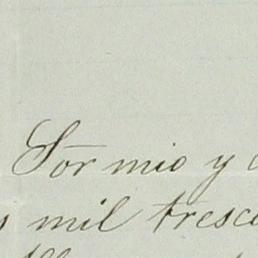 Sor mio y
mil tresc